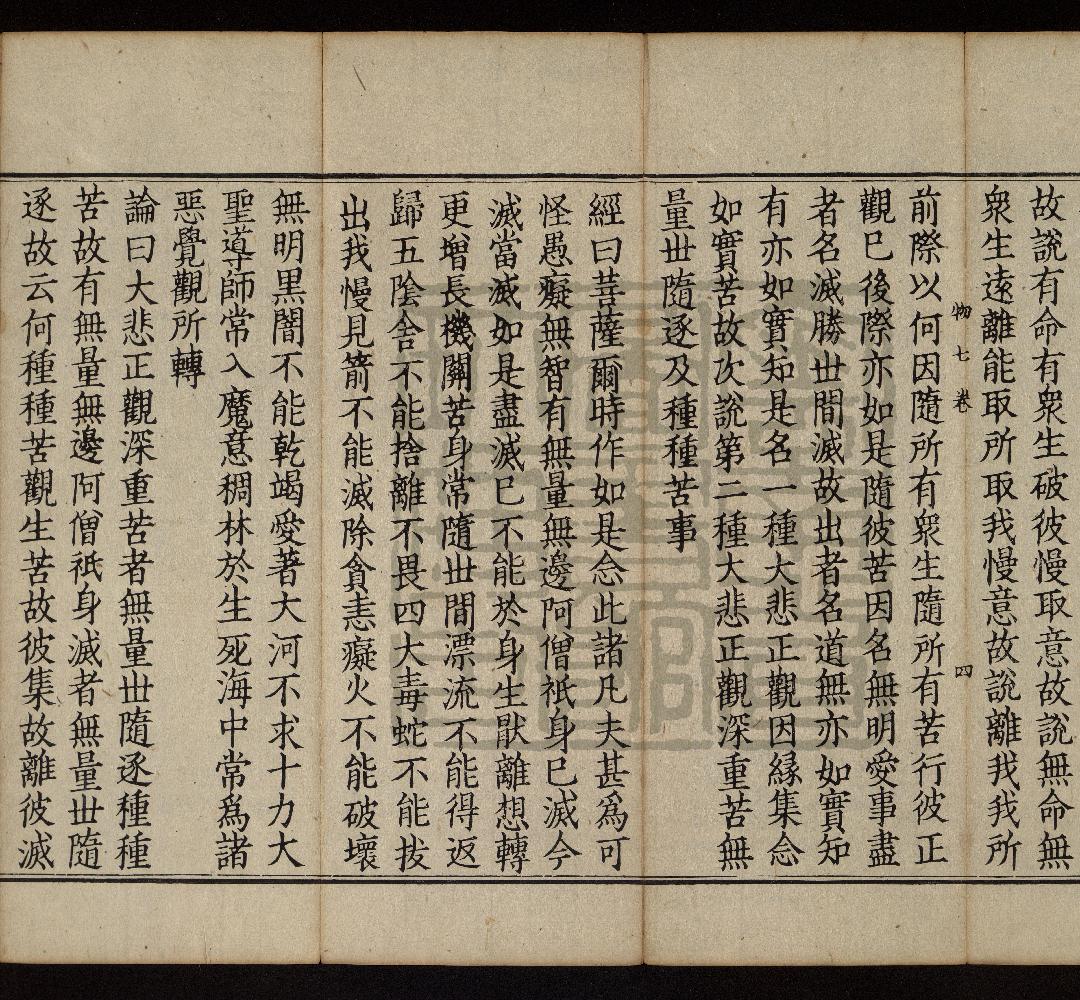 故說有命有衆生破彼慢取意故說無命無
衆生遠離能取所取我慢意故說離我我所
物七卷 四
前際以何因隨所有衆生隨所有苦行彼正
觀已後際亦如是隨彼苦因名無明愛事盡
者名滅勝世間滅故出者名道無亦如實知
有亦如實知是名一種大悲正觀因緣集念
如實苦故次說第二種大悲正觀深重苦無
量世隨逐及種種苦事
經曰菩薩爾時作如是念此諸凡夫甚為可
怪愚癡無智有無量無邊阿僧祇身已滅今
滅當滅如是盡滅已不能於身生厭離想轉
更增長機關苦身常隨世間漂流不能得返
歸五陰舍不能捨離不畏四大毒蛇不能拔
出我慢見箭不能滅除貪恚癡火不能破壞
無明黑闇不能乾竭愛著大河不求十力大
聖導師常入魔意稠林於生死海中常爲諸
惡覺觀所轉
論曰大悲正觀深重苦者無量世隨逐種種
苦故有無量無邊阿僧祇身滅者無量世隨
逐故云何種種苦觀生苦故彼集故離彼滅